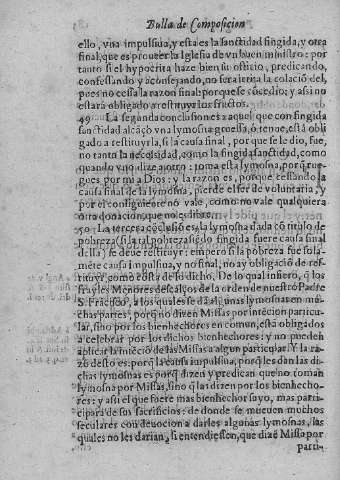 Bulla de Composicion
ello, vna impulsiua, y esta es la sanctidad fingida, y otra
final, que es proueer la Iglesia de vn buen ministro: por
tanto si el hypocrita haze bien su officio, predicando,
confessando y aconsejando, no sera irrita la colació del,
pues no cessa la razon final: porque se cócedio; y assi no
estará obligado a restituyr los fructos.
49 La segunda conclusion es: aquel que con fingida
sanctidad alcáçò vna lymosna gruessa, ò tenue, està obli
gado a restituyrla, si la causa final, por que se le dio, fue,
no tanto la necessidad, como la fingida sanctidad, como
quando vno dize a otro: toma esta lymosna, porq rue-
gues por mi a Dios: y la razon es, porque cessando la
causa final de la lymosna, pierde el ser de voluntaria, y
por el consiguiente no vale, como no vale qualquiera
otra donacion, que no es libre.
50 La tercera cóclusió es: la lymosna dada có titulo de
pobreza (si la tal pobreza siédo fingida fuere causa final
della) se deue restituyr: empero si la pobreza fue sola-
méte causa impulsiua, y no final, no ay obligació de res-
tituyr, como esta de lo dicho. De lo qual infiero, q los
frayles Menores descalços de la orden de nuestro Padre
S. Frácisco, a los quales se dá algunas lymosnas en mu-
chas partes, porq no dizen Missas por intécion particu-
lar, sino por los bienhechores en comun, està obligados
a celebrar por los dichos bienhechores: y no pueden
aplicar la intéció de las Missas a algun particular. Y la ra-
zó desto es: porq la causa impulsiua, porq les dan las di-
chas lymosnas es: porq dizen y predican que no toman
lymosna por Missas, sino q las dizen por los bienhecho-
res: y assi el que fuere mas bienhechor suyo, mas parti-
cipará de sus sacrificios: de donde se mueuen muchos
seculares con deuocion a darles algunas lymosnas, las
quales no les darian, si entendiessen, que dizé Missa por
parti-